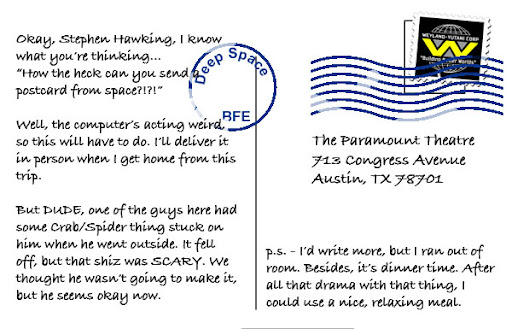 Okay, Stephen Hawking, I know
what you're thinking...
"How the heck can you send a
postcard from space?!?!"
Well, the computer's acting weird,
so this will have to do. I'll deliver it
in person when I get home from this
trip.
But DUDE, one of the guys here had
some Crab/Spider thing stuck on
him when he went outside. It fell
off, but that shiz was SCARY. We
thought he wasn't going to make it,
but he seems okay now.
Deep Space
BFE
WEYLAND-YUTANI CORP
"Building Better Worlds"
The Paramount Theatre
713 Congress Avenue
Austin, TX 78701
p.s. - I'd write more, but I ran out of
room. Besides, it's dinner time. After
all that drama with that thing, I
could use a nice, relaxing meal.